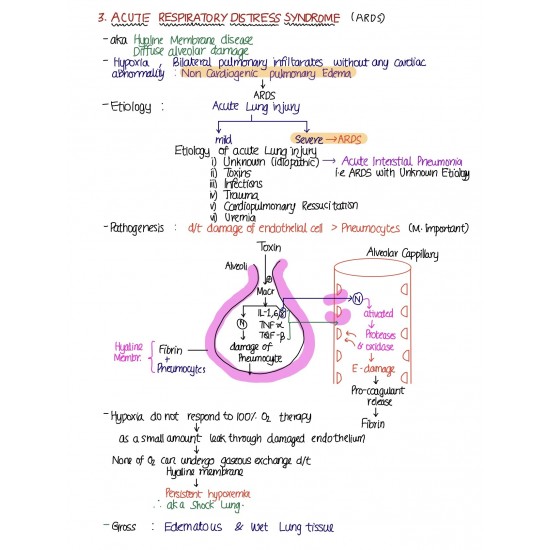 3. ACUTE RESPIRATORY DISTRESS SYNDROME (ARDS)
- aka Hyaline Membrane disease
Diffuse alveolar damage
- Hypoxia, Bilateral pulmonary infiltarates without any cardiac
abnormality : Non Cardiogenic pulmonary Edema
ARDS
- Etiology : Acute Lung injury
mild Severe → ARDS
Etiology of acute Lung injury
i) Unknown (idiopathic) → Acute Interstial Pneumonia
ii) Toxins i.e ARDS with Unknown Etiology
iii) Infections
iv) Trauma
v) Cardiopulmonary Ressucitation
vi) Uremia
- Pathogenesis : d/t damage of endothelial cell > Pneumocytes (M. Important)
Toxin
Alveolar Capillary
Alveoli
Macr
IL-1,6,8
N
TNF-α
TGF-β
damage of
Pneumocyte
Hyaline
Membr.
Fibrin
+
Pneumocytes
N
ativated
Proteases
& oxidase
E-damage
Pro-coagulant
release
Fibrin
- Hypoxia do not respond to 100% O₂ therapy
as a small amount leak through damaged endothelium
None of O₂ can undergo gaseous exchange d/t
Hyaline membrane
Persistent hypoxemia
∴ aka Shock Lung.
- Gross : Edematous & Wet Lung tissue